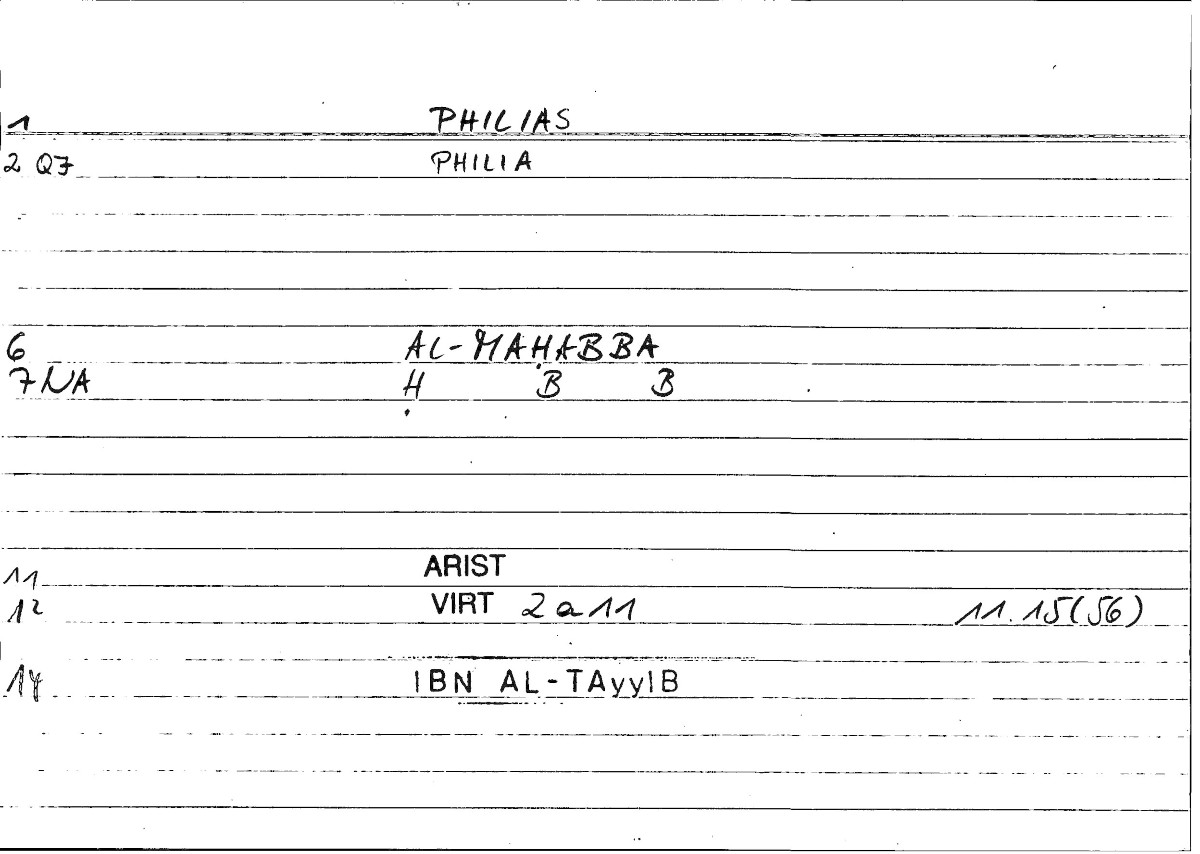 1 PHILIAS
2 Q7 PHILIA
6 AL-MAḤABBA
7 NA Ḥ B B
11 ARIST
12 VIRT 2 a 11 11.15(56)
14 IBN AL-TAyyIB